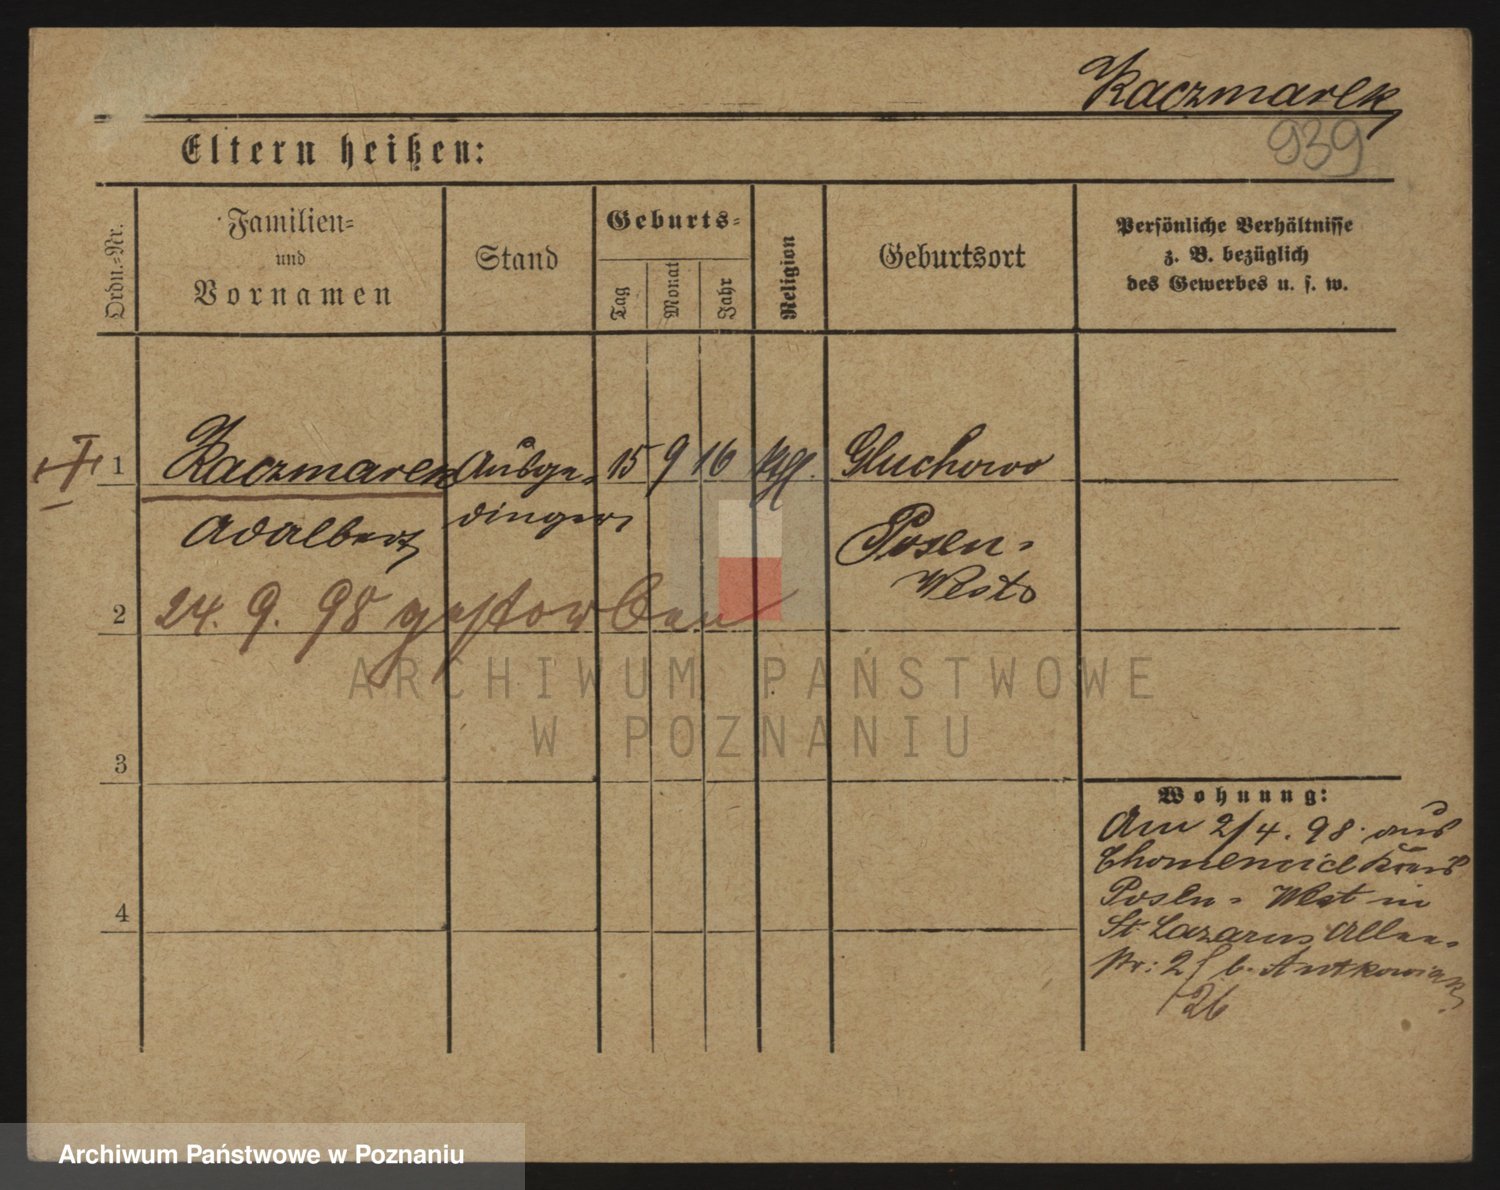 Kaczmarek
939
Eltern heißen:
Ordn.-Nr.
Familien-
und
Vornamen
Stand
Geburts-
Tag
Monat
Jahr
Religion
Geburtsort
Persönliche Verhältnisse
z. B. bezüglich
des Gewerbes u. s. w.
1 Kaczmarek Ausge- 15 9 16 ktl. Gluchowo
Adalbert dinger Posen-
West
2 24. 9. 98 gestorben
ARCHIWUM PAŃSTWOWE
W POZNANIU
3
Wohnung:
Am 2/4. 98. aus
Chomencice Kreis
Posen- West in
4
St Lazarus Allee-
str: 2 b. Antkowiak
26
Archiwum Państwowe w Poznaniu